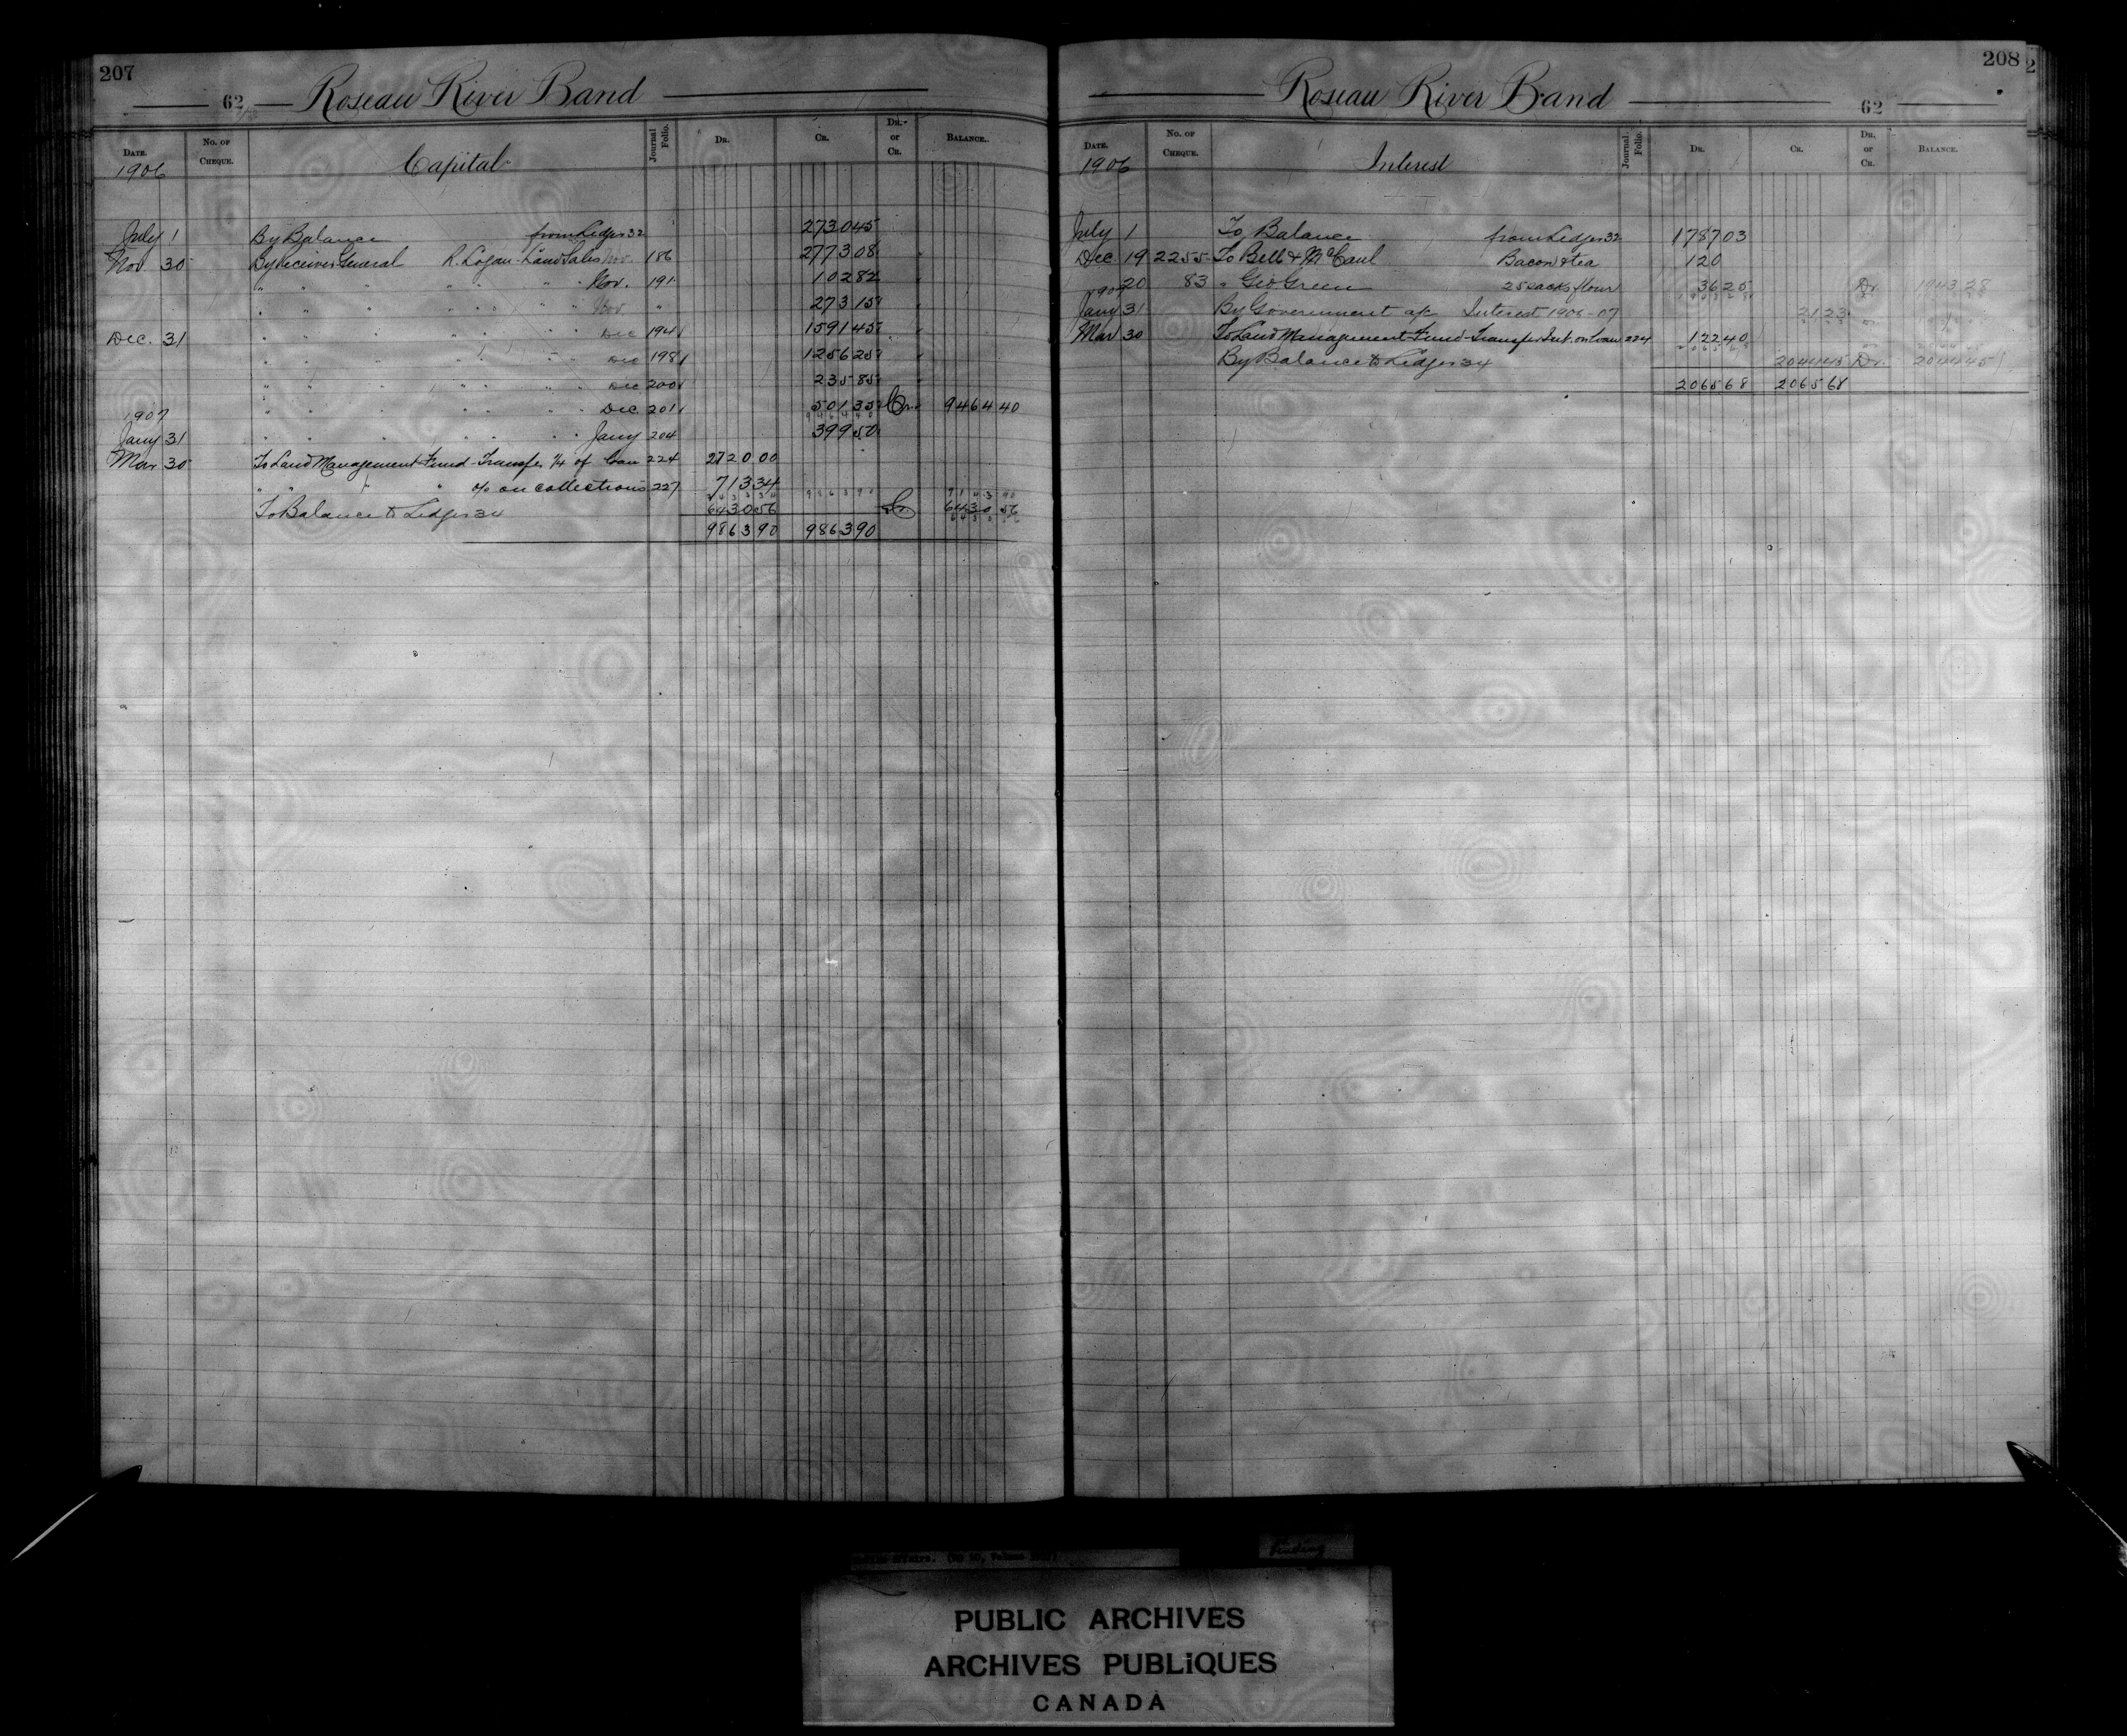 207
62 Roseau River Band
Date. No. of Cheque. Capital Journal Folio. Dr. Cr. Dr. or Cr. Balance.
1906
July 1 By Balance from Ledger 32 2730 45
Nov. 30 By Receiver General R. Logan - Land Sales Nov. 186 2773 08
" " " " " " " Nov. 191 102 82
" " " " " " " Nov. " 273 15
Dec. 31 " " " " " " " Dec 194 1591 45
" " " " " " " Dec 198 1256 25
" " " " " " " Dec 200 235 85
" " " " " " " Dec. 201 501 35 Cr. 9464 40
1907
Jany 31 " " " " " " " Jany 204 399 50
Mar 30 To Land Management Fund - Transfer 1/4 of loan 224 2720 00
" " " " % on collections 227 713 34
To Balance to Ledger 34 6430 56 Cr 6430 56
9863 90 9863 90
208
Roseau River Band 62
Date. No. of Cheque. Interest Journal Folio. Dr. Cr. Dr. or Cr. Balance.
1906
July 1 To Balance from Ledger 32 1787 03
Dec 19 2255 To Bell & McCaul Bacon & tea 1 20
20 83 " Geo Green 25 sacks flour 36 25 Dr. 1943 28
1907
Jany 31 By Government a/c Interest 1906-07 21 23
Mar 30 To Land Management Fund - Transfer Int. on loan 224 122 40
By Balance to Ledger 34 2044 45 Dr. 2044 45
2065 68 2065 68
PUBLIC ARCHIVES
ARCHIVES PUBLIQUES
CANADA